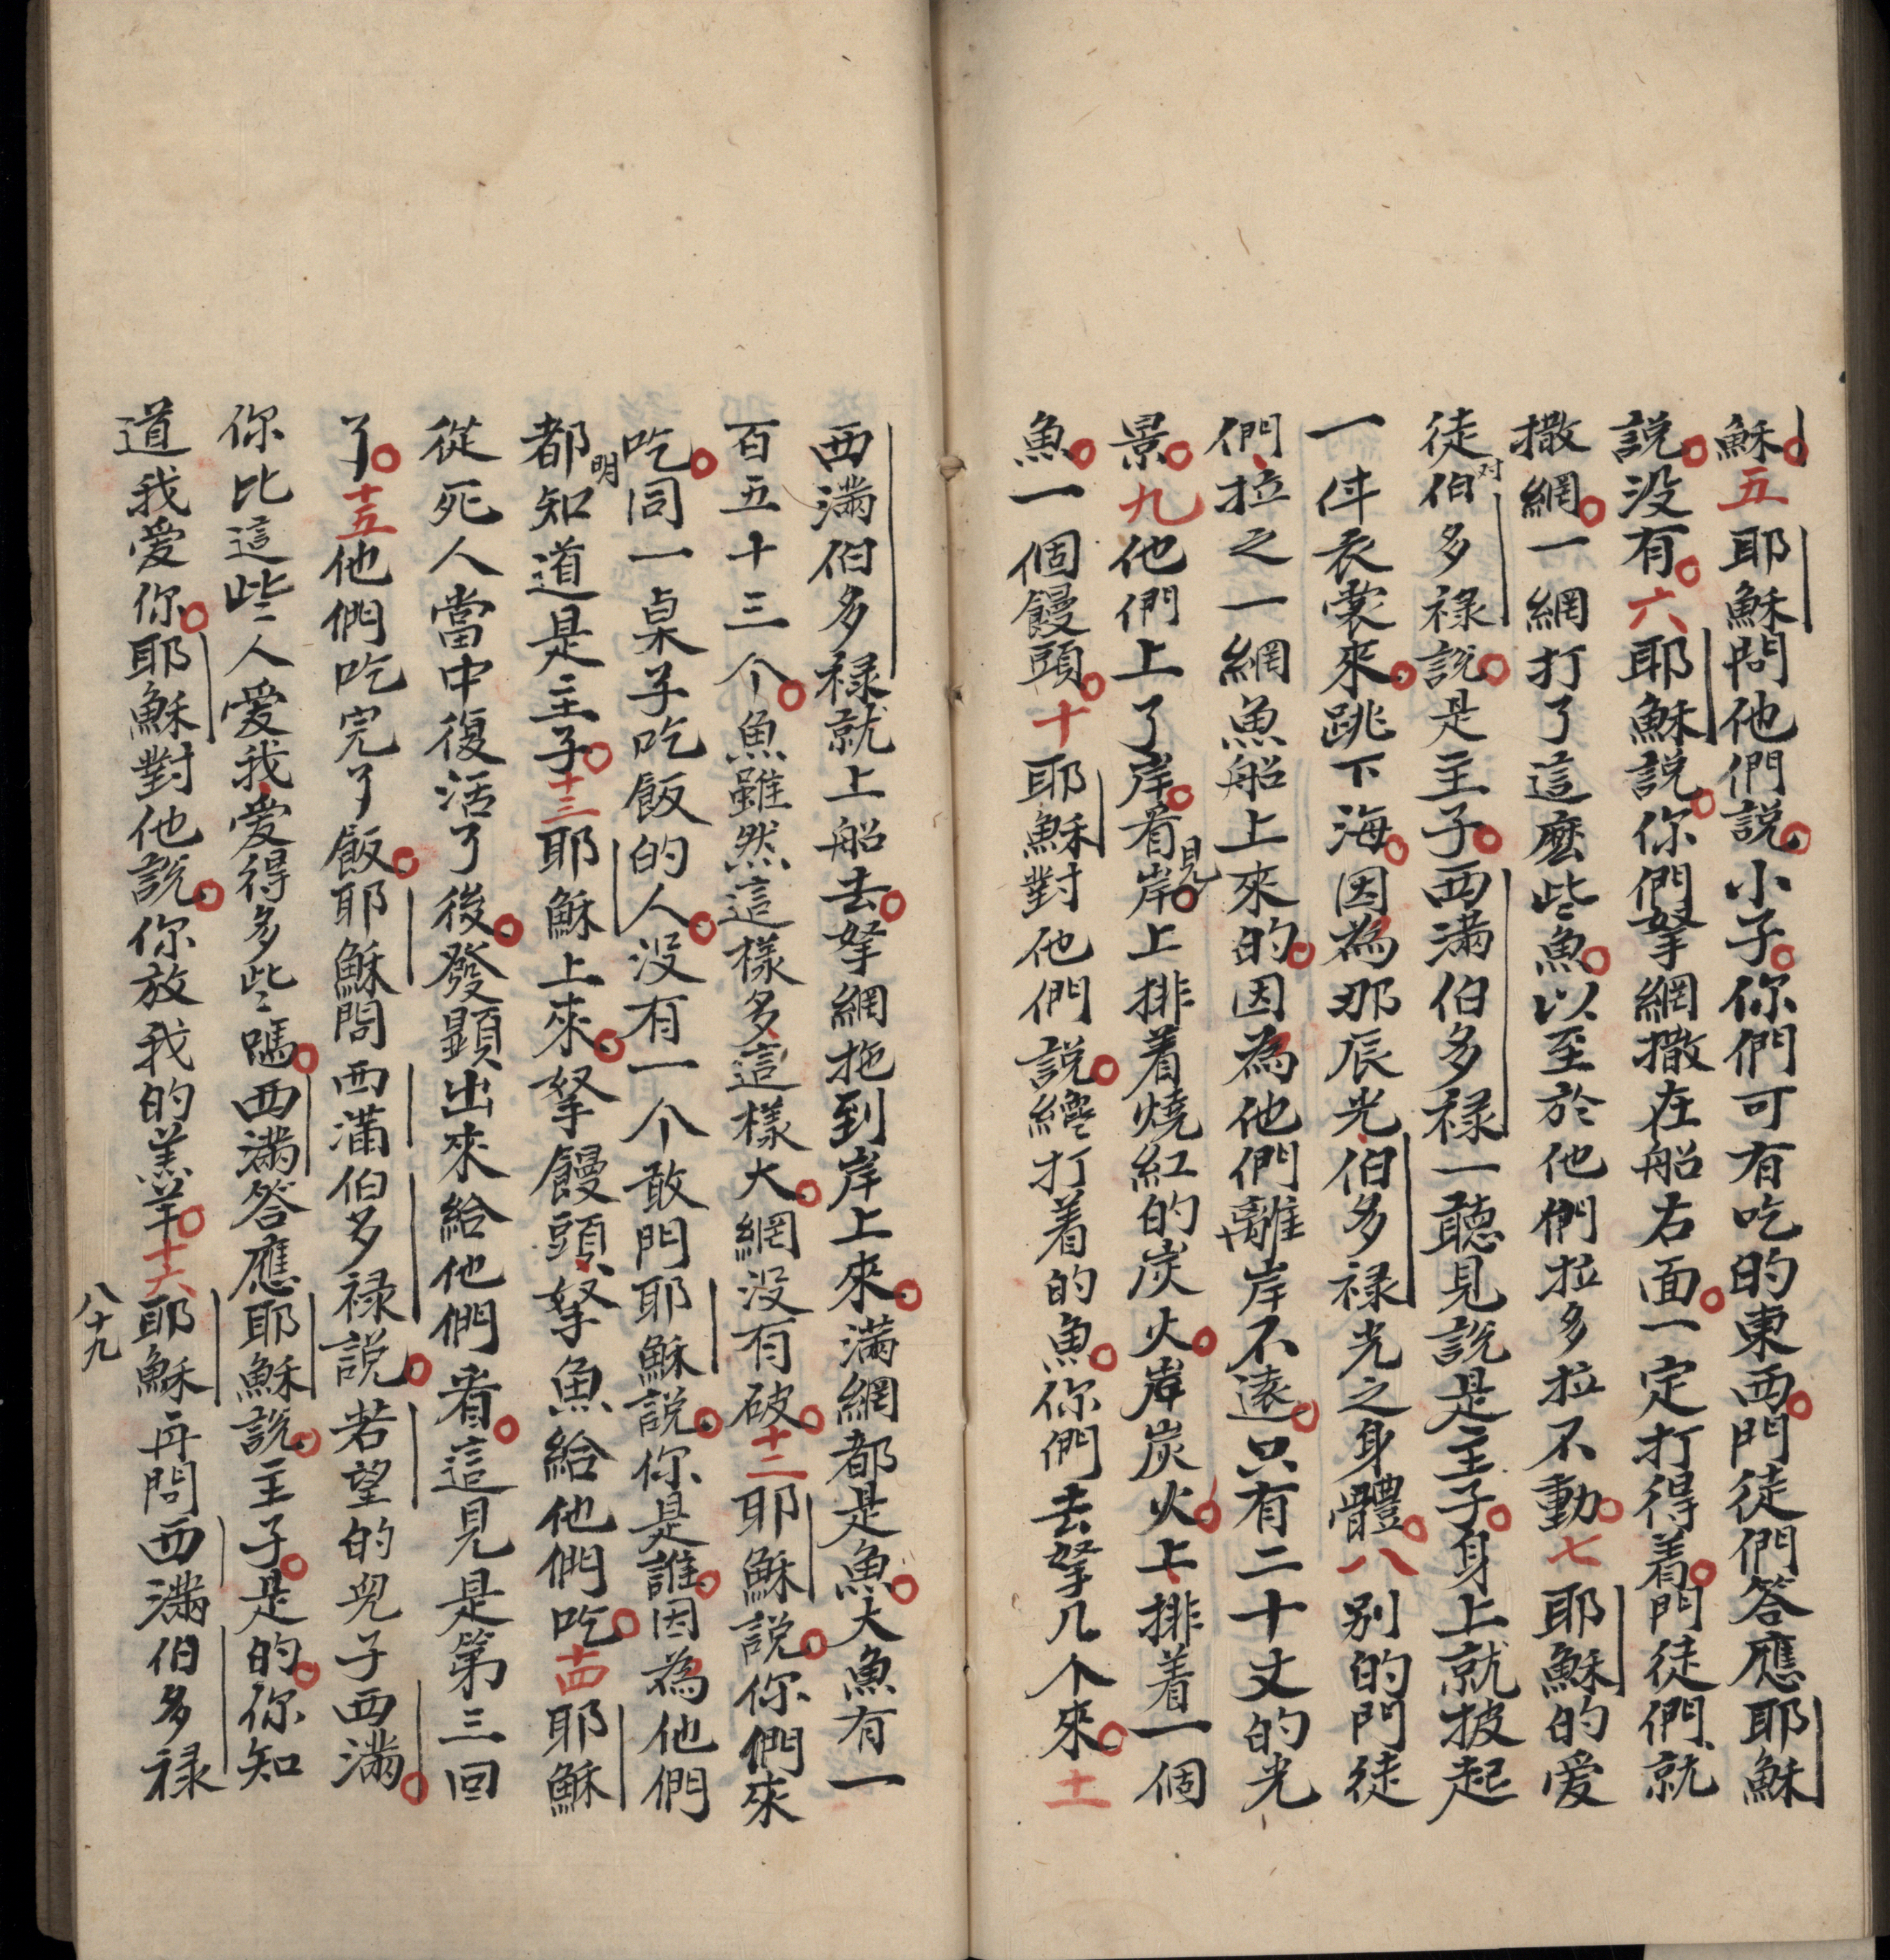 穌。五耶穌問他們說。小子。你們可有吃的東西。門徒們答應耶穌
說。没有。六耶穌說。你們拏網撒在船右面。一定打得着。門徒們、就
撒網。一網打了這麽些魚。以至於他們拉多拉不動。七耶穌的爱
徒对伯多禄說。是主子。西满伯多禄一聽見說是主子。身上就披起
一件衣裳來。跳下海。因為那辰光、伯多禄光之身體。八别的門徒
們、拉之一網魚船上來的。因為他們離岸不遠。只有二十丈的光
景。九他們上了岸。看見岸。上排着燒紅的炭火。岸炭火。上、排着一個
魚。一個饅頭。十耶穌對他們說。纔打着的魚。你們去拏几个來。十一
西满伯多禄就上船去。拏網拖到岸上來。满網都是魚。大魚有一
百五十三个。魚雖然這樣多、這樣大。網没有破。十二耶穌說。你們來
吃。同一桌子吃飯的人。没有一个敢問耶穌說。你是誰。因為他們
都明知道是主子。十三耶穌上來。拏饅頭、拏魚給他們吃。十四耶穌
從死人當中復活了後。發顯出來給他們看。這見是第三回
了。十五他們吃完了飯。耶穌問西满伯多禄說。若望的兒子西满。
你比這些人爱我、爱得多些嗎。西满答應耶穌說。主子。是的。你知
道我爱你。耶穌對他說。你放我的羔羊。十六耶穌再問西满伯多禄
八十九